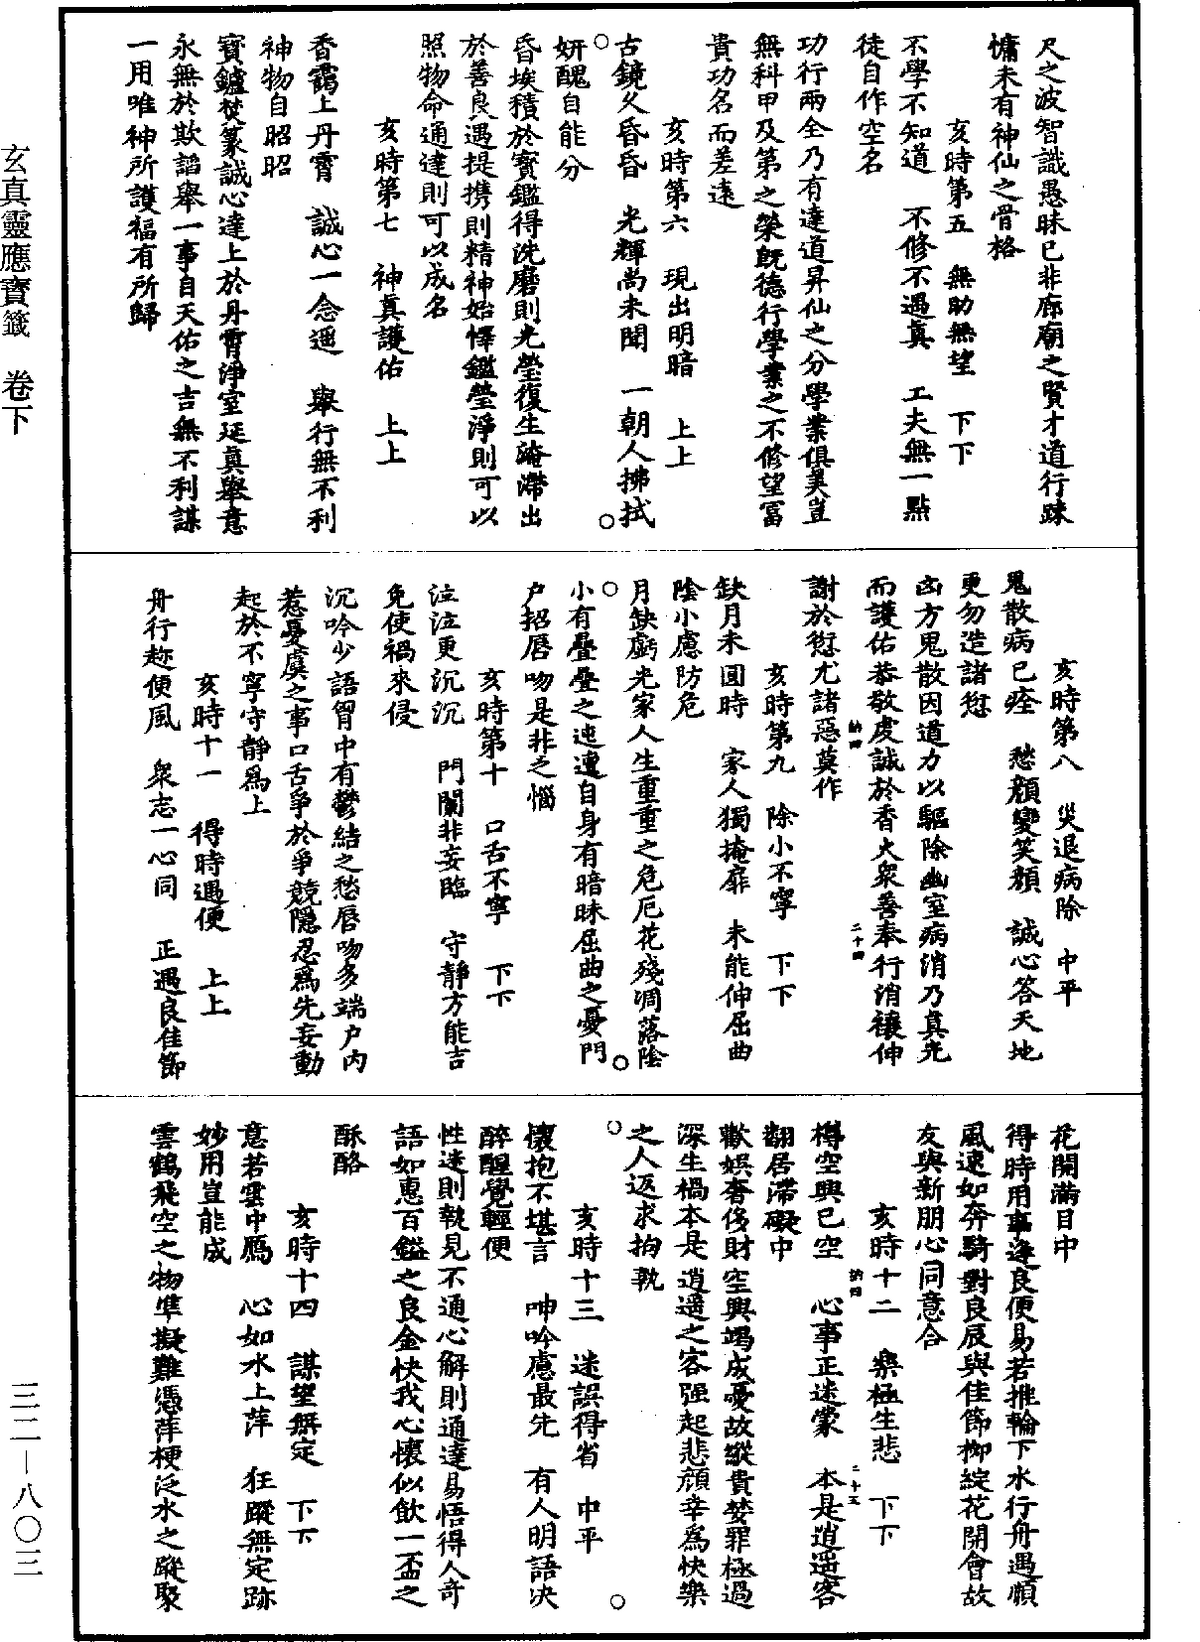 尺之波智識愚昧已非廊廟之賢才道行踈
慵未有神仙之骨格
亥時第五　無助無望　下下
不學不知道　不修不遇真　工夫無一點
徒自作空名
功行兩全乃有達道昇仙之分學業俱奠豈
無科甲及第之榮既德行學業之不修望冨
貴功名而差遠
亥時第六　現出明暗　上上
古鏡久昏昏　光輝尚未聞　一朝人拂拭
妍醜自能分
昏埃積於寳鑑得洗磨則光瑩復生淹滯出
於善良遇提携則精神始懌鑑瑩淨則可以
照物命通達則可以成名
亥時第七　神真護佑　上上
香靄上丹霄　誠心一念遥　舉行無不利
神物自昭昭
寳鑪焚篆誠心達上於丹霄淨室廷真舉意
永無於欺謟舉一事自天佑之吉無不利謀
一用唯神所護福有所歸
亥時第八　災退病除　中平
鬼散病已痊　愁顔變笑顔　誠心答天地
更勿造諸愆
凶方鬼散因道力以驅除幽室病消乃真光
而護佑恭敬虔誠於香火衆善奉行消禳伸
謝於愆尤諸惡莫作
亥時第九　除小不寧　下下
缺月未圓時　家人獨掩扉　未能伸屈曲
陰小慮防危
月缺虧光家人生重重之危厄花殘凋落陰
小有疊疊之迍邅自身有暗昧屈曲之憂門
户招唇吻是非之惱
亥時第十　口舌不寧　下下
泣泣更沉沉　門闌非妄臨　守靜方能吉
免使禍來侵
沉吟少語胷中有鬱結之愁唇吻多端户内
惹憂虞之事口舌爭於爭競隱忍爲先妄動
起於不寧守靜爲上
亥時十一　得時遇便　上上
舟行趂便風　衆志一心同　正遇良佳節
花開滿目中
得時用事逢良便易若推輪下水行舟遇順
風速如奔騎對良辰與佳節柳綻花開會故
友與新朋心同意合
亥時十二　樂極生悲　下下
樽空興已空　心事正迷蒙　本是逍遥客
翻居滯礙中
歡娱奢侈財空興竭成憂故縱貴婪罪極過
深生禍本是逍遥之客强起悲顔幸爲快樂
之人返求拘執
亥時十三　迷誤得省　中平
懷抱不堪言　呻吟慮最先　有人明語决
醉醒覺輕便
性迷則執見不通心解則通達易悟得人竒
語如惠百鎰之良金快我心懷似飲一盃之
酥酪
亥時十四　謀望無定　下下
意若雲中鴈　心如水上萍　狂蹤無定跡
妙用豈能成
雲鶴飛空之物準擬難憑萍梗泛水之蹤聚
玄真靈應寶籤　卷下
三二—八〇三